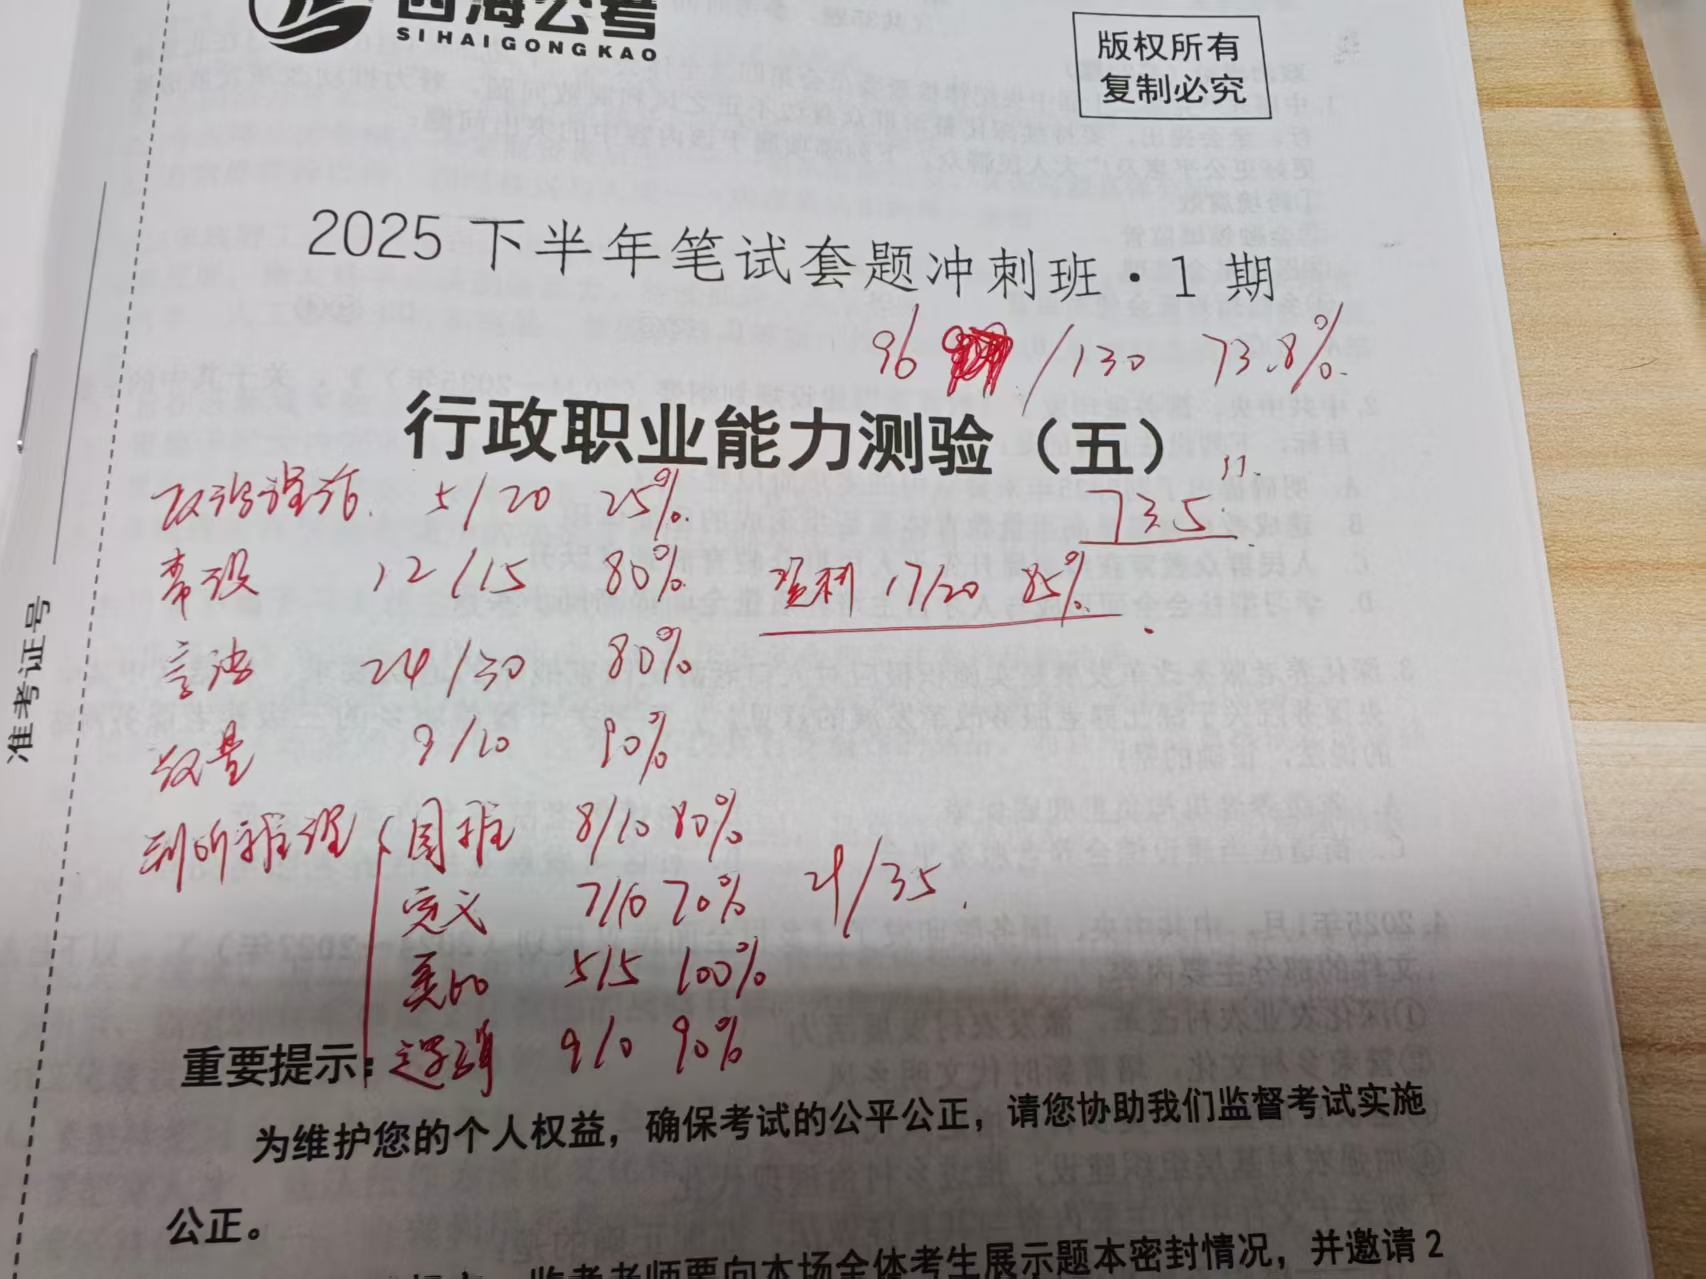 四海公考
SIHAIGONGKAO
版权所有
复制必究
2025下半年笔试套题冲刺班·1期
96 /130 73.8%.
行政职业能力测验（五）
73.5
政治理论. 5/20 25%.
常识 12/15 80%.
资料 17/20 85%.
言语 24/30 80%
数量 9/10 90%
判断推理 图推 8/10 80%
定义 7/10 70%
29/35.
类比 5/5 100%
逻辑 9/10 90%
准考证号
重要提示：
为维护您的个人权益，确保考试的公平公正，请您协助我们监督考试实施
公正。
监考老师要向本场全体考生展示题本密封情况，并邀请2